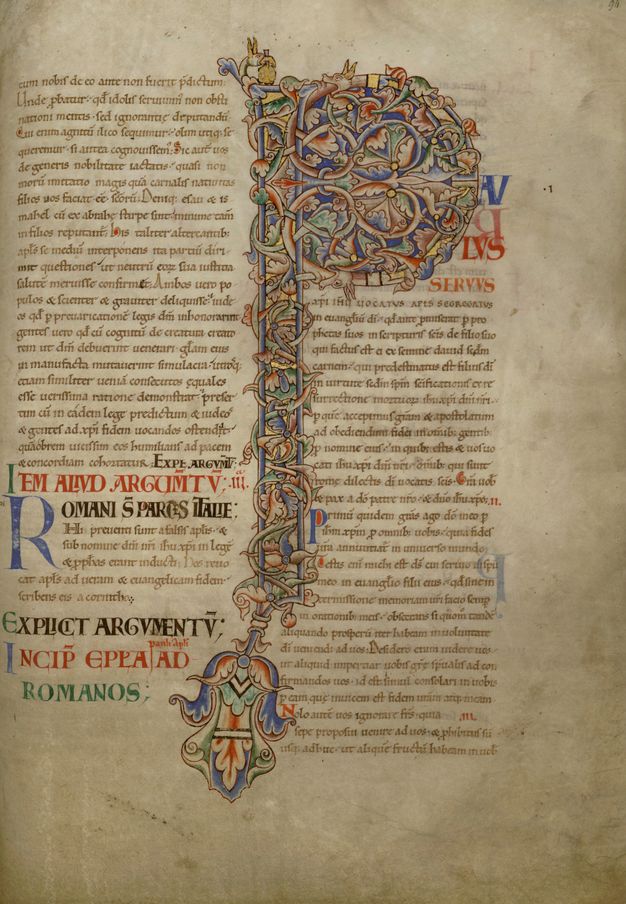 tum nobis de eo ante non fuerit p̄dictum.
Unde ꝓbatur. qd̄ idolis seruiunt non obsti
nationi mentis. sed ignorantie deputandū
Qui enim agnitū ilico sequimur. olim utiq; se
queremur. si antea cognouissem. Sic aut̄ uos
de generis nobilitate iactatis. quasi non
morū imitatio magis quā carnalis natiuitas
filios uos faciat eē scōrū. Deniq; esau & is
mahel cū ex abrahę stirpe sint. minime tam̄
in filios reputant̄. His taliter altercantib;
apl̄s se mediū interponens ita partiū diri
mit questiones. ut neutrū eorū sua iustitia
salutē meruisse confirmet. Ambos uero po
pulos & scienter & grauiter deliquisse. iude
os qd̄ p̄ preuaricationē legis dm̄ inhonorarint
gentes uero qd̄ cū cognitū de creatura creato
rem ut dm̄ debuerint uenerari. glam̄ eius
in manufacta mutauerint simulacra. utrosq;
etiam similiter ueniā consecutos equales
esse uerissima ratione demonstrat. preser
tim cū in eadem lege predictum & iudeos
& gentes ad xp̄i fidem uocandos ostendat.
quāobrem uicissim eos humilians ad pacem
& concordiam cohortatur. EXPL ARGVMT̄.
ITEM ALIVD ARGVM̄TV̄; III.
ROMANI S̄ PARTIS ITALIE;
Hi preuenti sunt a falsis apl̄is. &
sub nomine dn̄i nr̄i ihu xp̄i in legē
& ꝓphās erant inducti. Hos reuo
cat apl̄s ad ueram & euangelicam fidem.
scribens eis a corintho;
EXPLICIT ARGVMENTV̄;
pauli apli
INCIP̄ EPL̄A AD
ROMANOS;
PAV
LVS
SERVVS
XPI IHV VOCATVS APL̄S SEGREGATVS
in euangliū dī. qd̄ ante ꝓmiserat p̄ ꝓ
phetas suos in scripturis sc̄is de filio suo
qui factus est ei ex semine dauid sedm̄
carnem. qui predestinatus est filius dī
in uirtute sedm̄ spm̄ sc̄ificationis ex re
surrectione mortuorū ihu xp̄i dn̄i nr̄i.
p̄ quē accepimus gr̄am & apostolatum
ad obediendum fidei in omnib; gentib;
p̄ nomine eius. in quib; estis & uos uo
cati ihu xp̄i dn̄i nr̄i. omib; qui sunt
rome dilectis dī uocatis sc̄is. Gr̄a uob
& pax a dō patre nr̄o & dn̄o ihu xp̄o. II.
Primū quidem gr̄as ago dō meo p̄
ihm̄ xp̄m p̄ omnib; uobis. quia fides
ura annuntiat̄ in uniuerso mundo.
Testis enī michi est dſ̄ cui seruio in spū
meo in euanglio filii eius. qd̄ sine in
termissione memoriam urī facio semp̄
in orationib; meis. obsecrans si quom̄ tandē
aliquando prosperū iter habeam in uoluntate
dī ueniendi ad uos. Desidero enim uidere uos.
ut aliquid impertiar uobis grę spirualis ad con
firmandos uos. id est simul consolari in uobis
p̄ eam quę inuicem est fidem urām atq; meam.
Nolo autē uos ignorare frs̄. quia III.
sepe proposui uenire ad uos. & ꝓhibitus sū
usq; adhuc. ut aliquē fructū habeam in uob